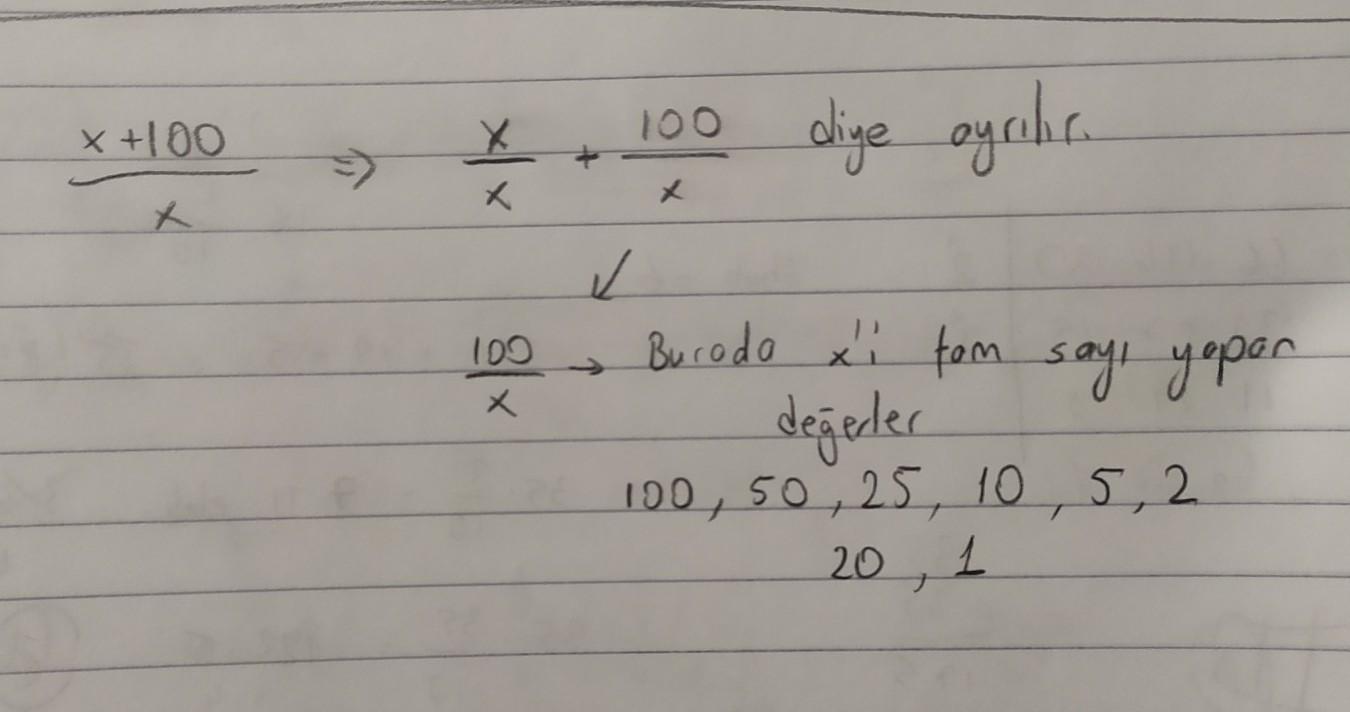 x+100/x ⇒ x/x + 100/x diye ayrılır.
↙
100/x → Burada x'i tam sayı yapan
değerler
100, 50, 25, 10, 5, 2
20, 1